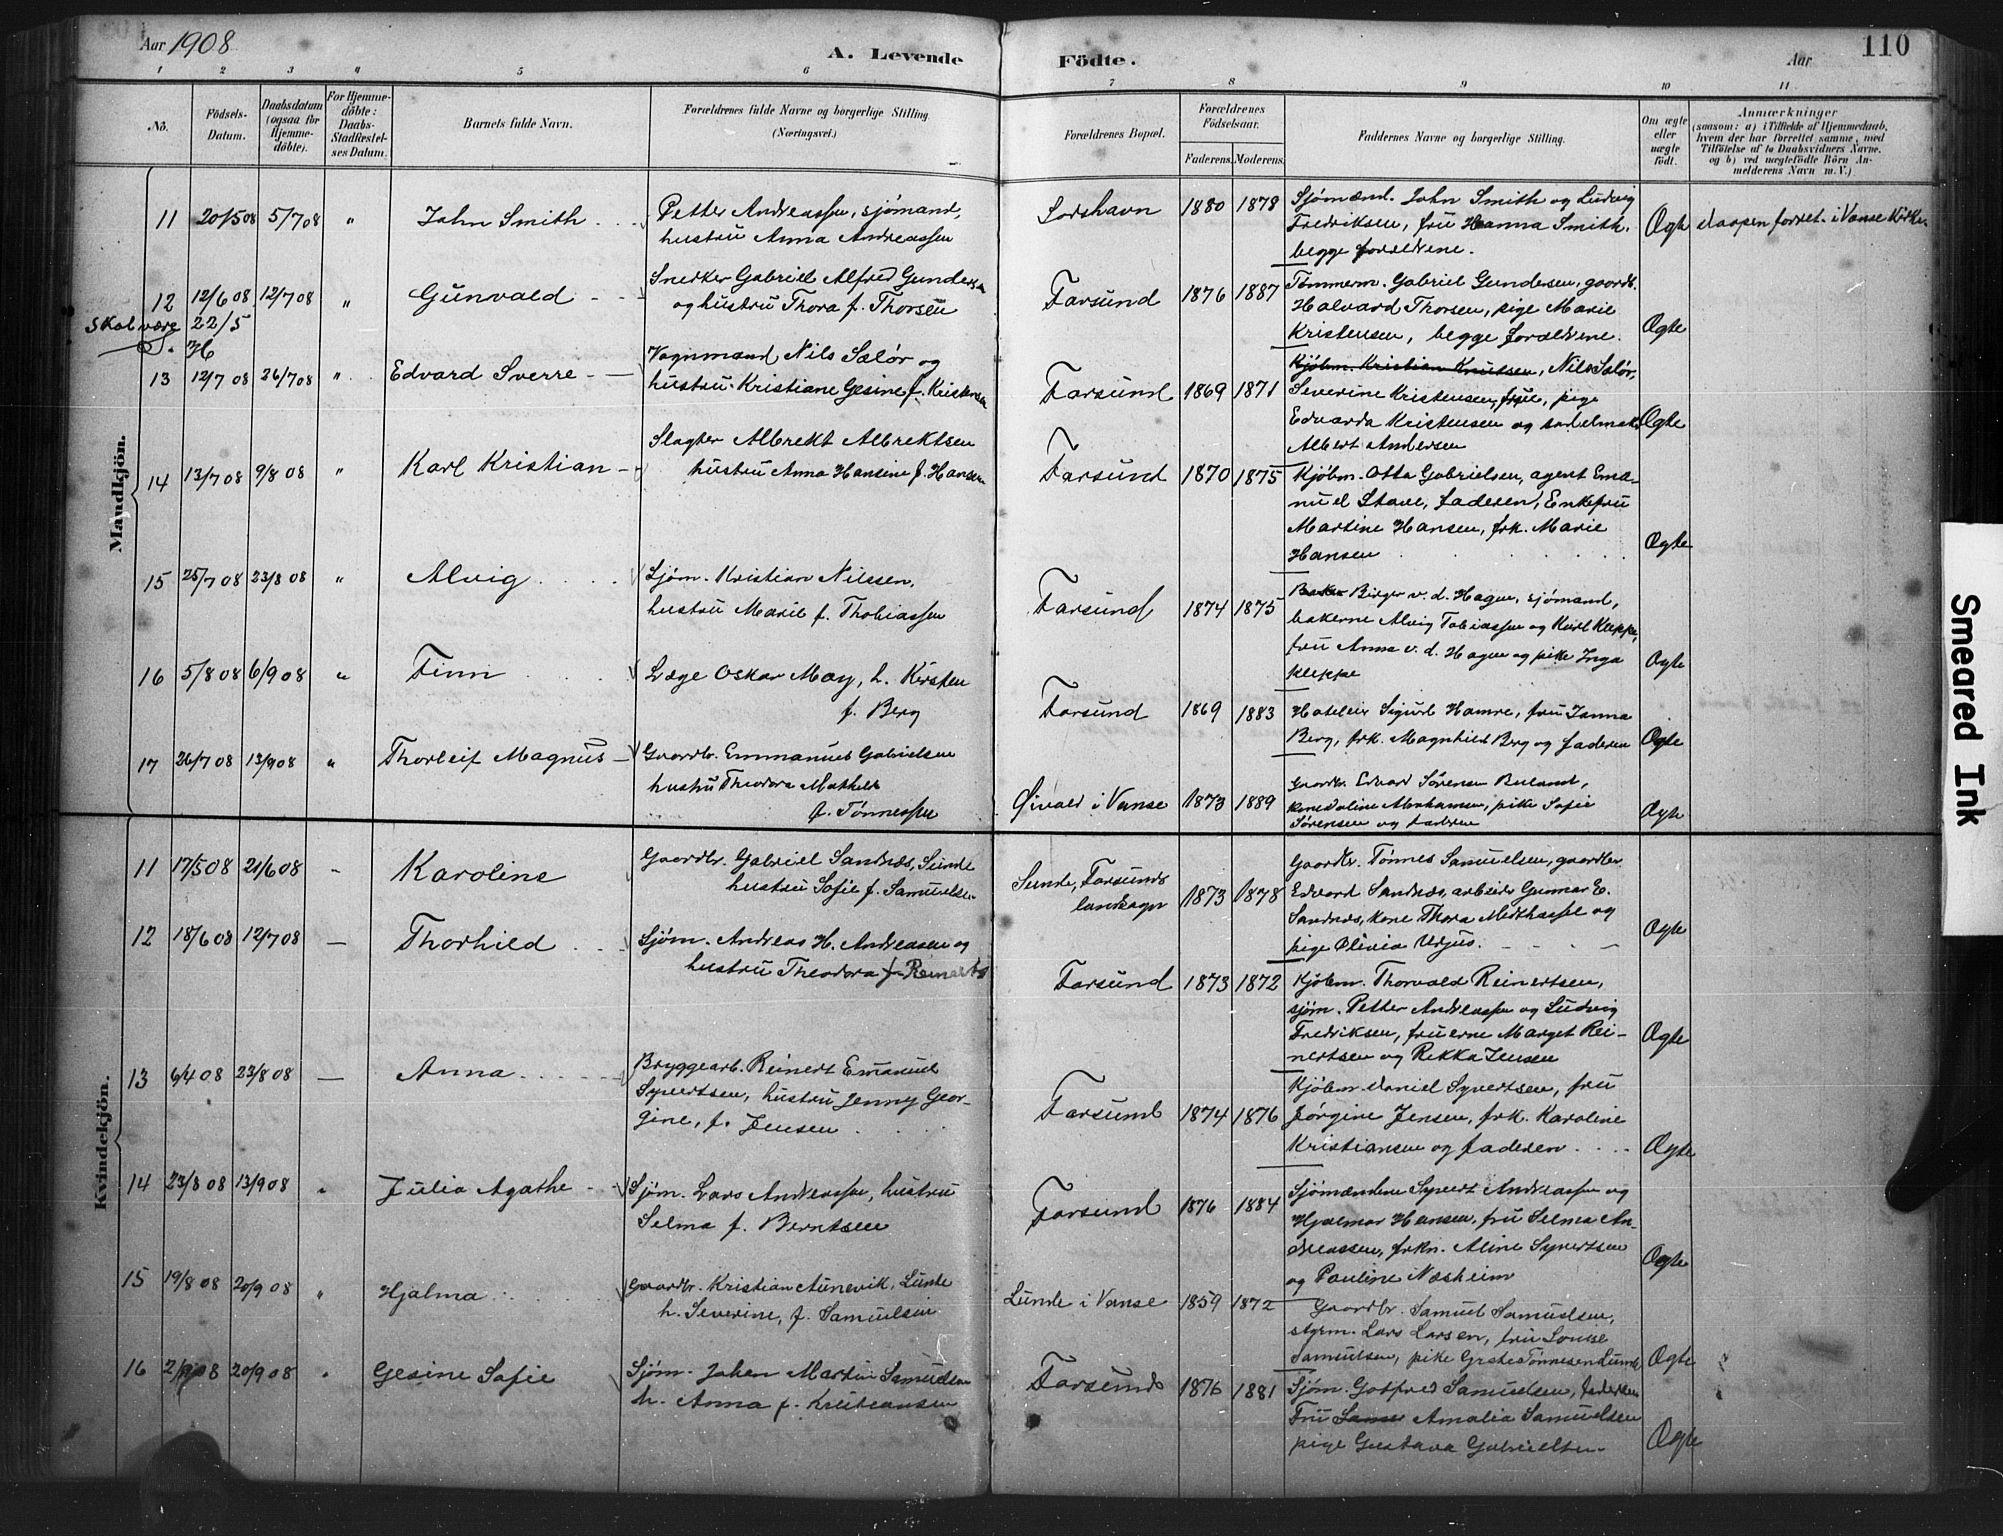 Aar 1908
A. Levende
Fødte.
Aar
110
1 2 3 4 5 6 7 8 9 10 11
No.
Fødsels-Datum.
Daabsdatum (ogsaa for Hjemme-døbte).
For Hjemme-døbte: Daabs-Stadfæstel-ses Datum.
Barnets fulde Navn.
Forældrenes fulde Navne og borgerlige Stilling (Næringsvei.)
Forældrenes Bopæl.
Forældrenes Fødselsaar.
Faderens. Moderens.
Faddernes Navne og borgerlige Stilling.
Om ægte eller uægte født.
Anmærkninger
(saasom: a) i Tilfælde af Hjemmedaab, hvem der har forrettet samme, med Tilføielse af to Daabsvidners Navne. og b) ved uægtefødte Børn An-melderens Navn m. V.)
Mandkjøn.
11 20/5 08 5/7 08 " John Smith
Petter Andreassen, sjømand,
hustru Anna Andreassen
Lodshavn 1880 1878
Sjømænd. John Smith og Ludvig
Fredriksen, fru Hanna Smith,
begge forældrene.
Ægte
daapen forret. i Vanse Kirke.
12 12/6 08 12/7 08 " Gunvald
Skal være 22/5
Snekker Gabriel Alfred Gundersen
og hustru Thora f. Thorsen
Farsund 1876 1887
Tømmerm. Gabriel Gundersen, gaardb.
Halvard Thorsen, pige Marie
Kristensen, begge forældrene.
Ægte
13 12/7 08 26/7 08 " Edvard Sverre
Vognmand Nils Sælør og
hustru Kristiane Gesine f. Kristensen
Farsund 1869 1871
Kjøbm. Kristian Knutsen, Nils Sælør,
Severine Kristensen, frue, pige
Edvarda Kristensen og sadelmak.
Albert Andersen
Ægte
14 13/7 08 9/8 08 " Karl Kristian
Slagter Albrekt Albrektsen
hustru Anna Hansine f. Hansen
Farsund 1870 1875
Kjøbm. Otto Gabrielsen, agent Ema-
nuel Stave, faderen, Enkefru
Martine Hansen, frk. Marie
Hansen
Ægte
15 25/7 08 23/8 08 " Alvig
Sjøm. Kristian Nilssen,
hustru Marie f. Thobiassen
Farsund 1874 1875
Birger v. d. Hagen, sjømand,
bakerne Alvig Tobiassen og Karl Kleppe,
fru Anna v. d. Hagen og pike Inga
Kleppe
Ægte
16 5/8 08 6/9 08 " Finn
Læge Oskar May, h. Kirsten
f. Berg
Farsund 1869 1883
Hoteleier Sigurd Hamre, fru Janna
Berg, frk. Magnhild Berg og faderen
Ægte
17 26/7 08 13/9 08 " Thorleif Magnus
Gaardbr. Emmanuel Gabrielsen
hustru Theodora Mathilde
f. Tønnessen
Øivold i Vanse 1873 1889
Gaardbr. Edvard Sørensen Buland,
kone Daline Abrahamsen, pike Sofie
Sørensen og faderen
Ægte
Kvindekjøn.
11 17/5 08 21/6 08 - Karoline
Gaardbr. Gabriel Sandnæs, Sunde
hustru Sofie f. Samuelsen
Sunde, Farsunds
landsogn 1873 1878
Gaardbr. Tønnes Samuelsen, gaardbr.
Edvard Sandnæs, arbeider Gunnar E.
Sandnæs, kone Thora Midthassel og
pige Olivia Urgus.
Ægte
12 18/6 08 12/7 08 — Thorhild
Sjøm. Andreas H. Andreassen og
hustru Theodora f. Reinerts
Farsund 1873 1872
Kjøbm. Thorvald Reinertsen,
sjøm. Petter Andreassen og Ludvig
Fredriksen, fruerne Marget Rei-
nertsen og Rikka Jensen
Ægte
13 6/4 08 23/8 08 — Anna
Bryggearb. Reinert Emanuel
Syvertsen, hustru Jenny Geor-
gine, f. Jensen
Farsund 1874 1876
Kjøbm. Daniel Syvertsen, fru
Jørgine Jensen, frk. Karoline
Kristiansen og faderen
Ægte
14 23/8 08 13/9 08 Julia Agathe
Sjøm. Lars Andreassen, hustru
Selma f. Berntsen
Farsund 1876 1884
Sjømændene Syvert Andreassen og
Hjalmar Hansen, fru Selma An-
dreassen, frkn. Aline Syvertsen
og Pauline Næsheim
Ægte
15 19/8 08 20/9 08 " Hjalma
Gaardbr. Kristian Aunevik, Lunde
h. Severine, f. Samuelsen
Lunde i Vanse 1859 1872
Gaardbr. Samuel Samuelsen,
styrm. Lars Larsen, fru Louise
Samuelsen, pike Grete Tønnesen Lunde
Ægte
16 20/9 08 Gesine Sofie
Sjøm. Johan Martin Samuelsen
h. Anna f. Kristiansen
Farsund 1876 1881
Sjøm. Gotfred Samuelsen, faderen
Fru Amalia Samuelsen
pige Gustava Gabrielsen
Ægte
Smeared Ink